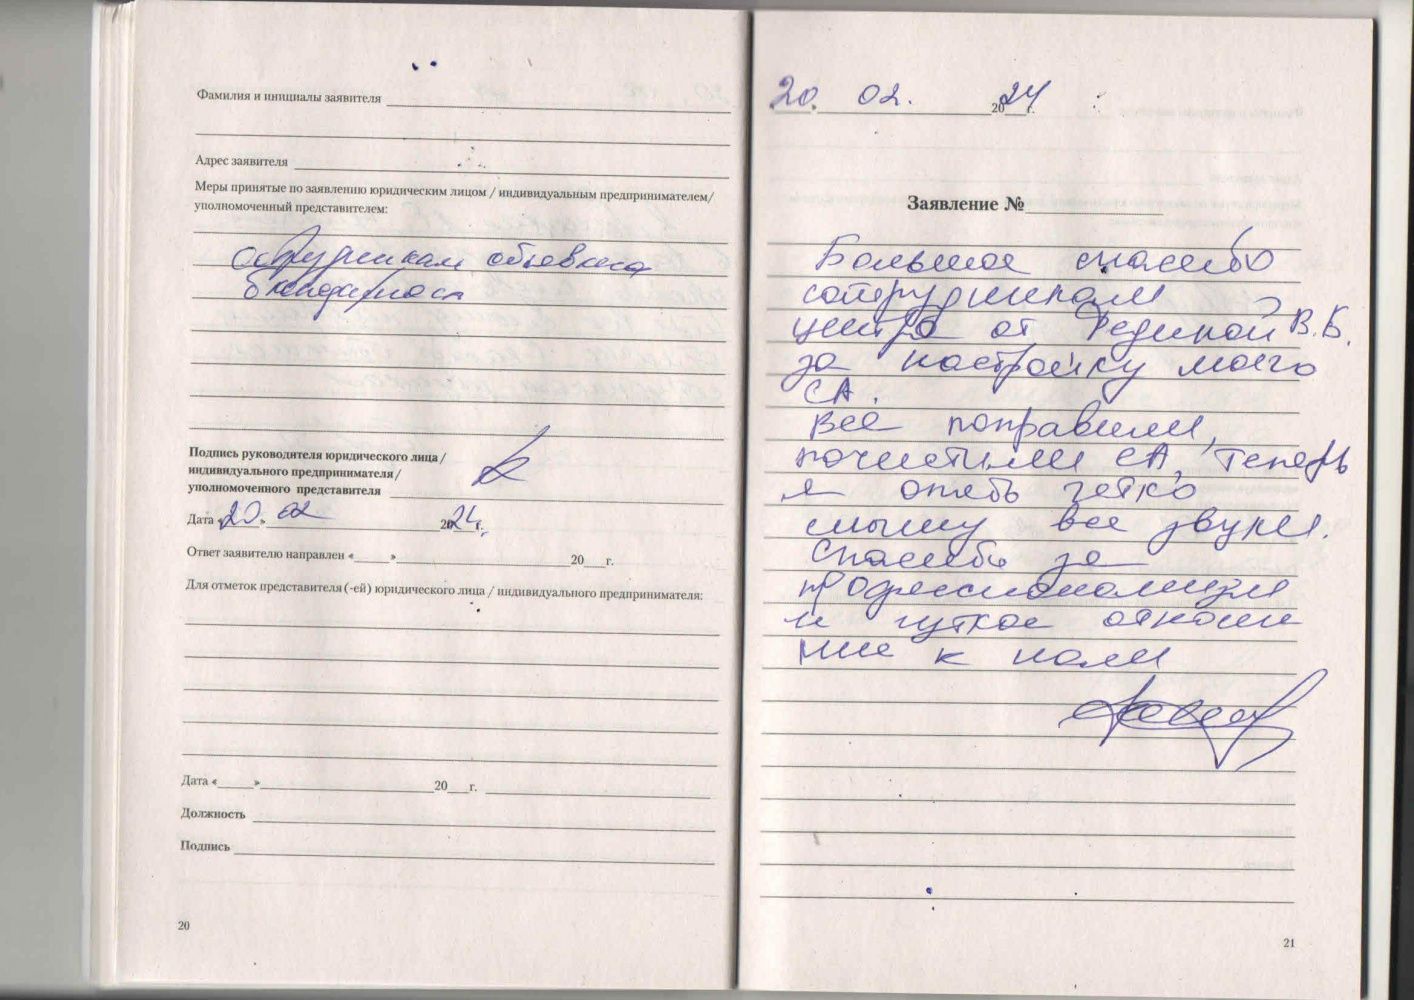 Фамилия и инициалы заявителя
Адрес заявителя
Меры принятые по заявлению юридическим лицом / индивидуальным предпринимателем/
уполномоченный представителем:
Сотрудникам объявлена
благодарность
Подпись руководителя юридического лица /
индивидуального предпринимателя /
уполномоченного представителя
Дата «20» 02 2024г.
Ответ заявителю направлен «___» 20___г.
Для отметок представителя (-ей) юридического лица / индивидуального предпринимателя:
Дата «___» 20___г.
Должность
Подпись
20
20. 02. 2024г.
Заявление №
Большое спасибо
сотрудникам
центра от Фединой В.Б.
за настройку моего
СА.
Все поправили,
почистили СА, теперь
я опять четко
слышу все звуки.
Спасибо за
профессионализм
и чуткое отноше
ние к нам
21